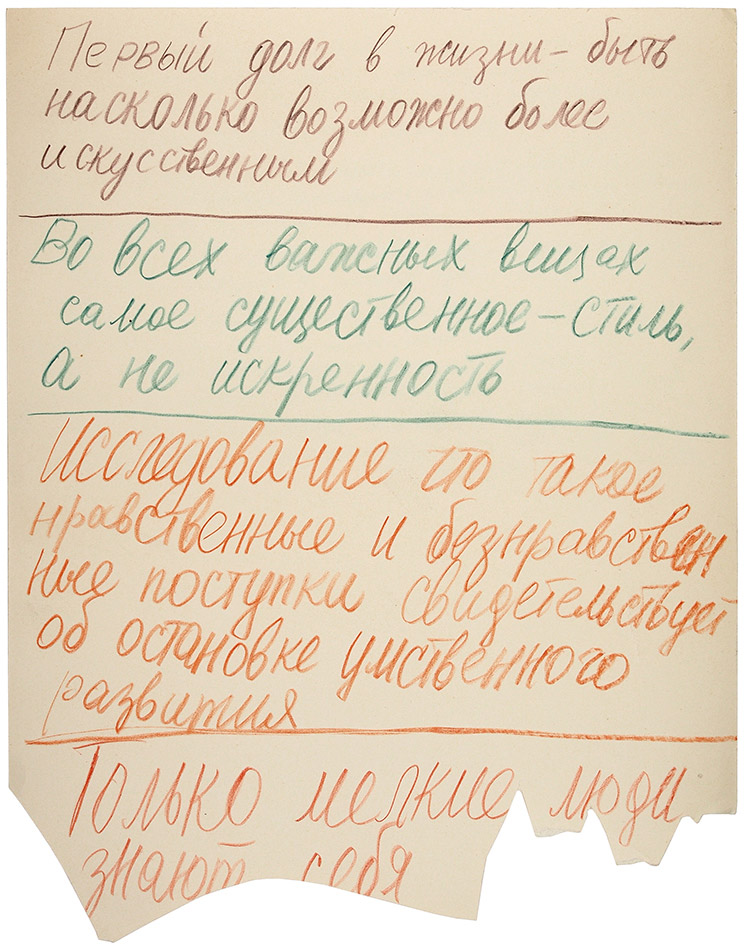 Первый долг в жизни – быть
насколько возможно более
искусственным
Во всех важных вещах
самое существенное – стиль,
а не искренность
Исследование что такое
нравственные и безнравствен
ные поступки свидетельствует
об остановке умственного
развития
Только мелкие люди
знают себя